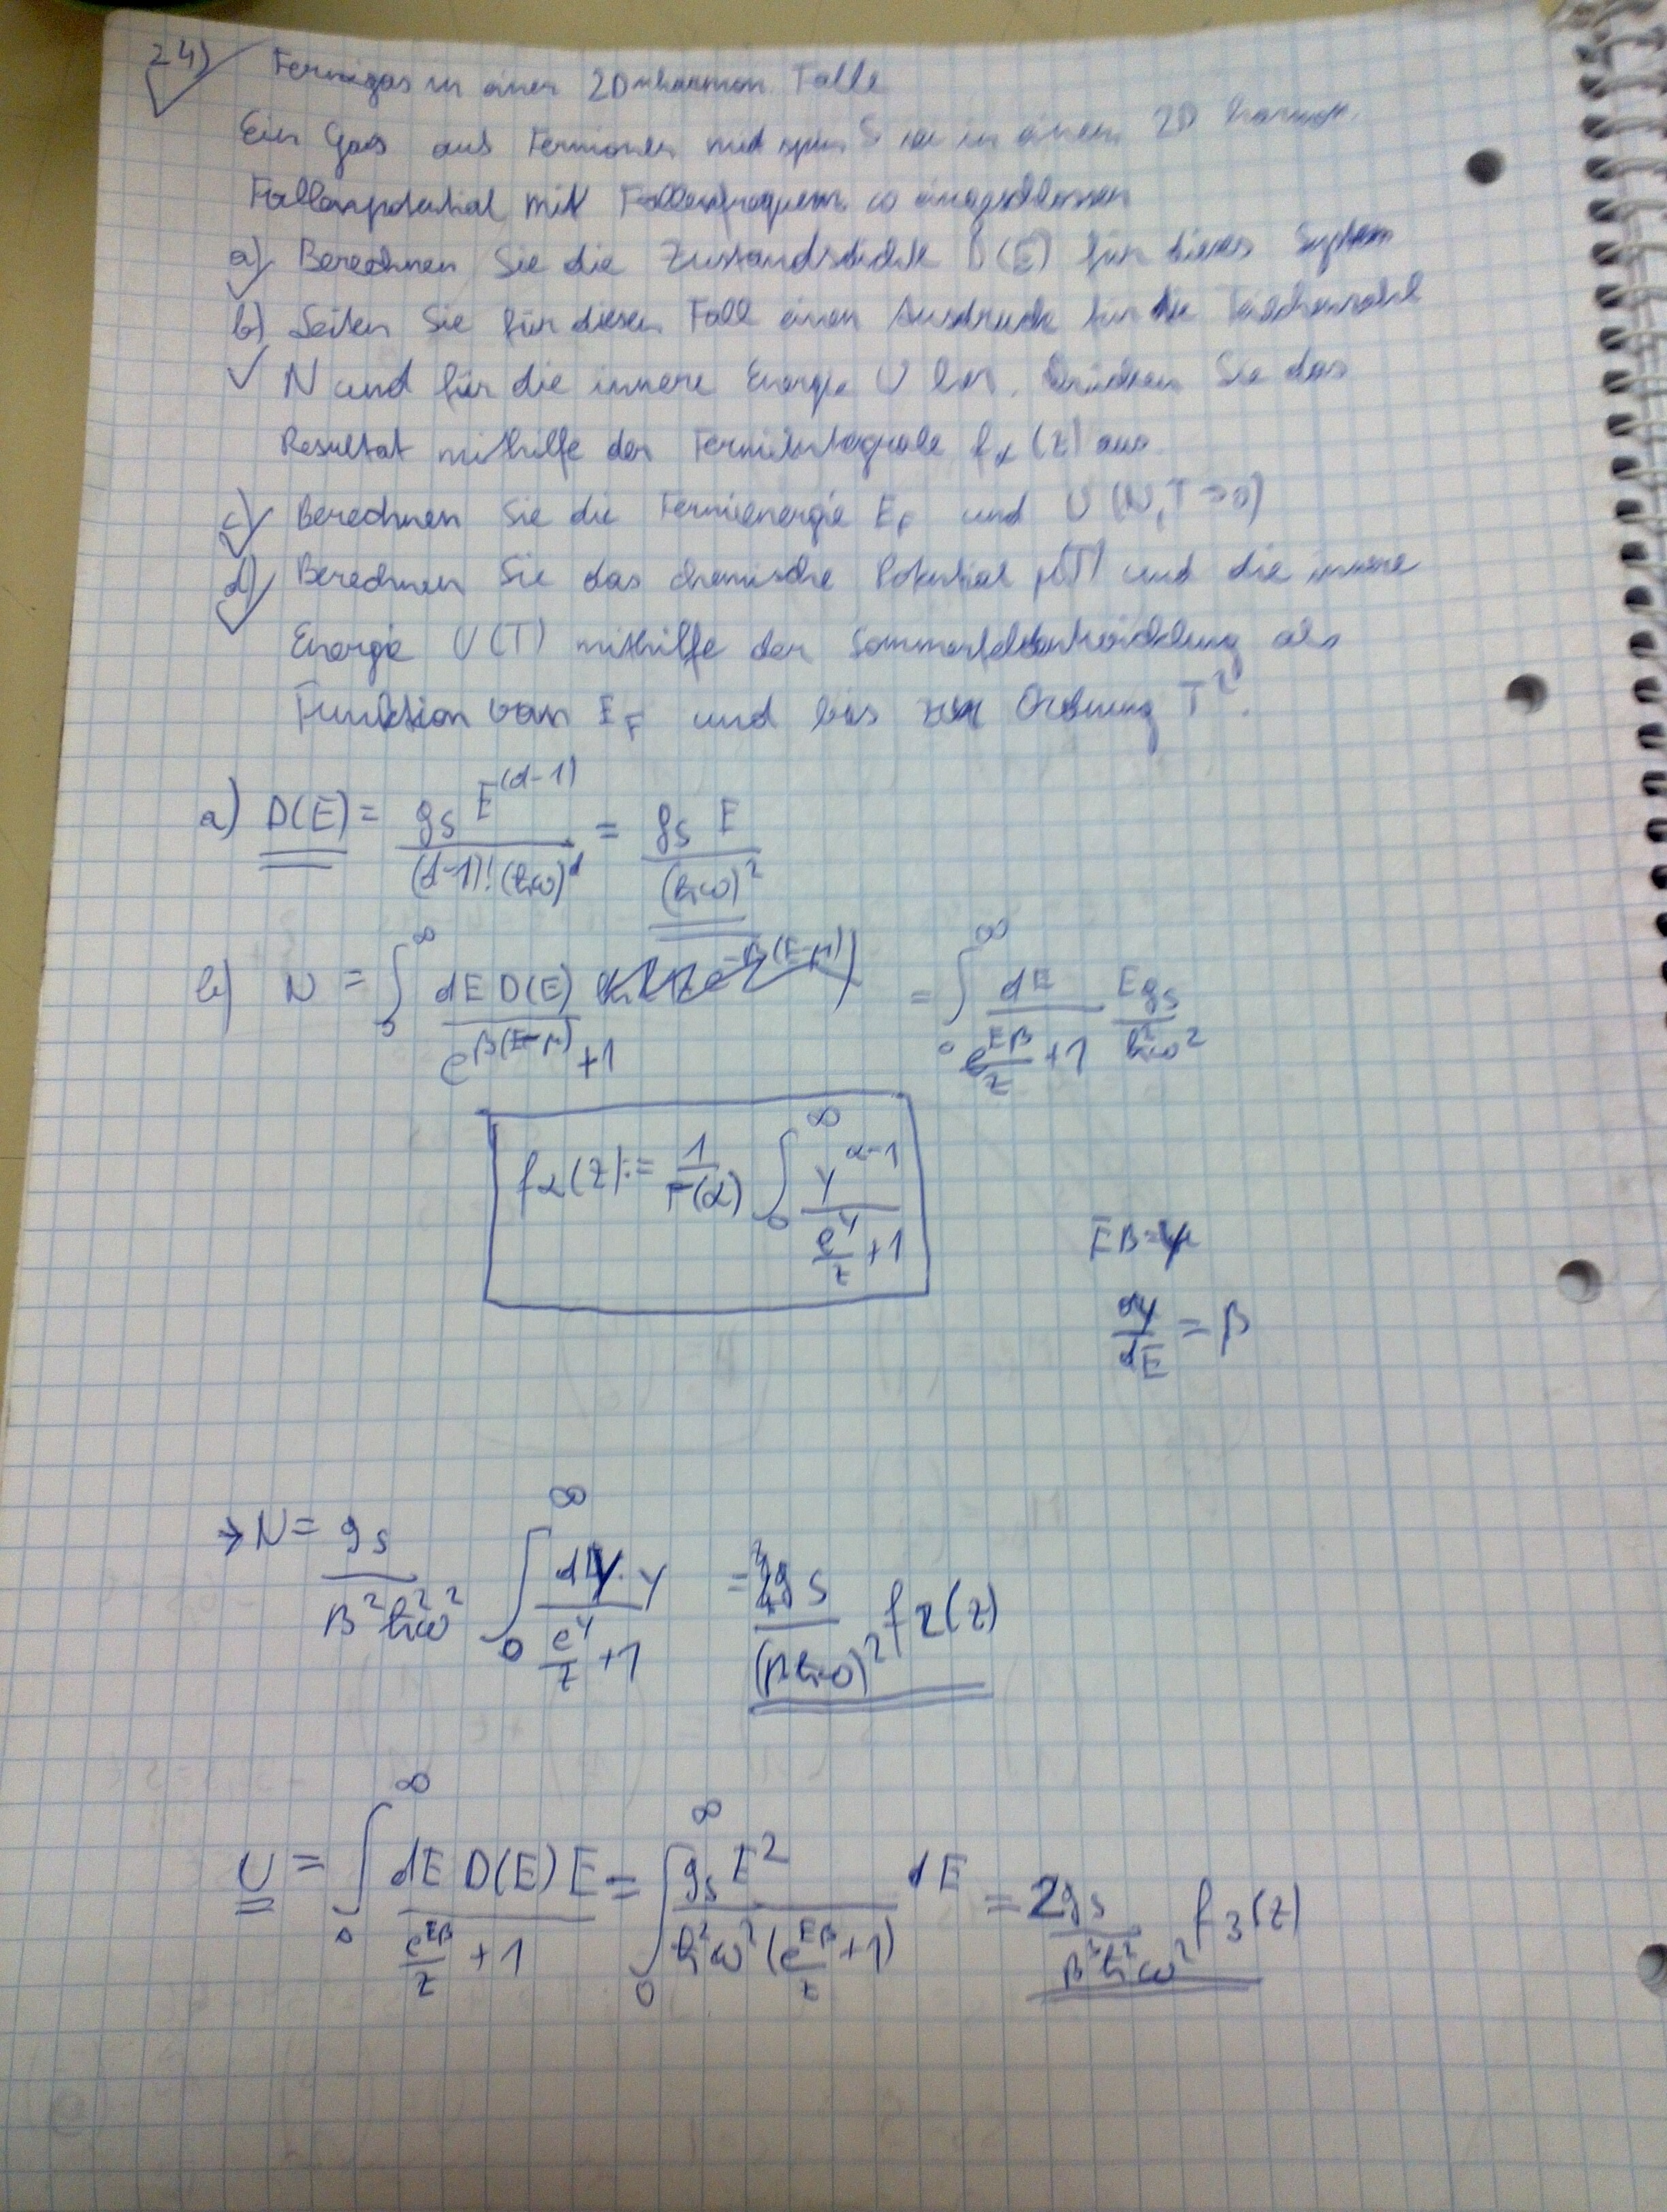 24) Fermigas in einer 2D harmon. Falle
Ein Gas aus Fermionen mit spin S sei in einem 2D harmon.
Fallenpotential mit Fallenfrequenz ω eingeschlossen
a) Berechnen Sie die Zustandsdichte D(E) für dieses System
b) Leiten Sie für diesen Fall einen Ausdruck für die Teilchenzahl
N und für die innere Energie U her. Drücken Sie das
Resultat mithilfe der Fermiintegrale f_α(z) aus.
c) Berechnen Sie die Fermienergie E_F und U(N,T→0)
d) Berechnen Sie das chemische Potential μ(T) und die innere
Energie U(T) mithilfe der Sommerfeldentwicklung als
Funktion von E_F und bis zur Ordnung T².
a) D(E) = g_S E^(d-1) / ((d-1)! (ħω)^d) = g_S E / (ħω)²
b) N = ∫_0^∞ dE D(E) / (e^{β(E-μ)} + 1) = ∫_0^∞ dE / (e^{Eβ}/z + 1) E g_S / (ħ²ω²)
f_α(z) := 1/Γ(α) ∫_0^∞ y^{α-1} / (e^y/z + 1)
Eβ = y
dy/dE = β
→ N = g_S / (β²ħ²ω²) ∫_0^∞ dy · y / (e^y/z + 1) = g_S / (βħω)² f_2(z)
U = ∫_0^∞ dE D(E) E / (e^{Eβ}/z + 1) = ∫_0^∞ g_S E² / (ħ²ω² (e^{Eβ}/z + 1)) dE = 2g_S / (β³ħ²ω²) f_3(z)